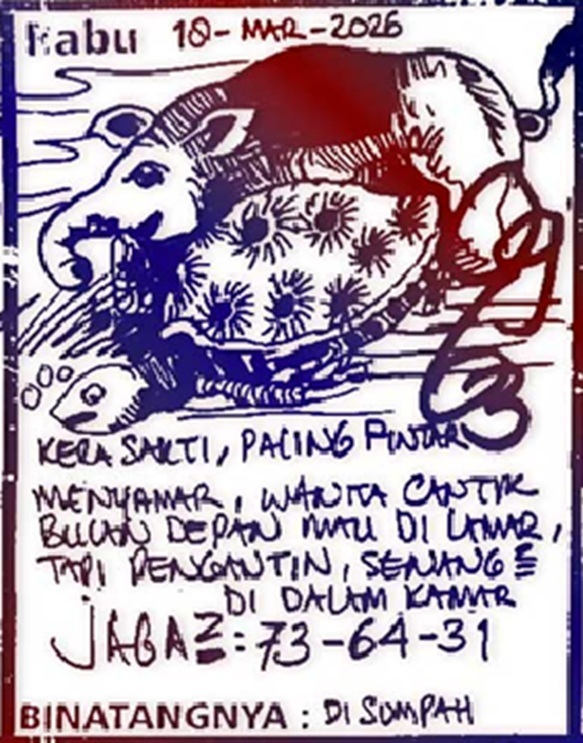 Rabu 18-MAR-2026
KERA SAKTI, PALING PINTAR
MENYAMAR, WANITA CANTIK
BULAN DEPAN MAU DI LAMAR,
TAPI PENGANTIN, SENANG2
DI DALAM KAMAR
JAGA2: 73-64-31
BINATANGNYA : DI SUMPAH